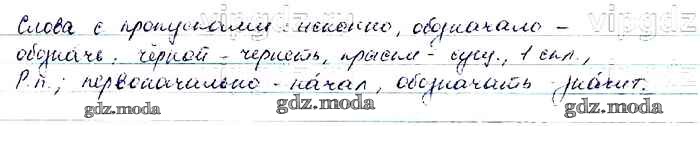 Слова с пропусками: исконно, обозначало -
обознача. чёрной - чернеть, краски - сущ., 1 скл.,
Р.п.; первоначально - начал, обозначать - значит.
gdz.moda gdz.moda gdz.moda